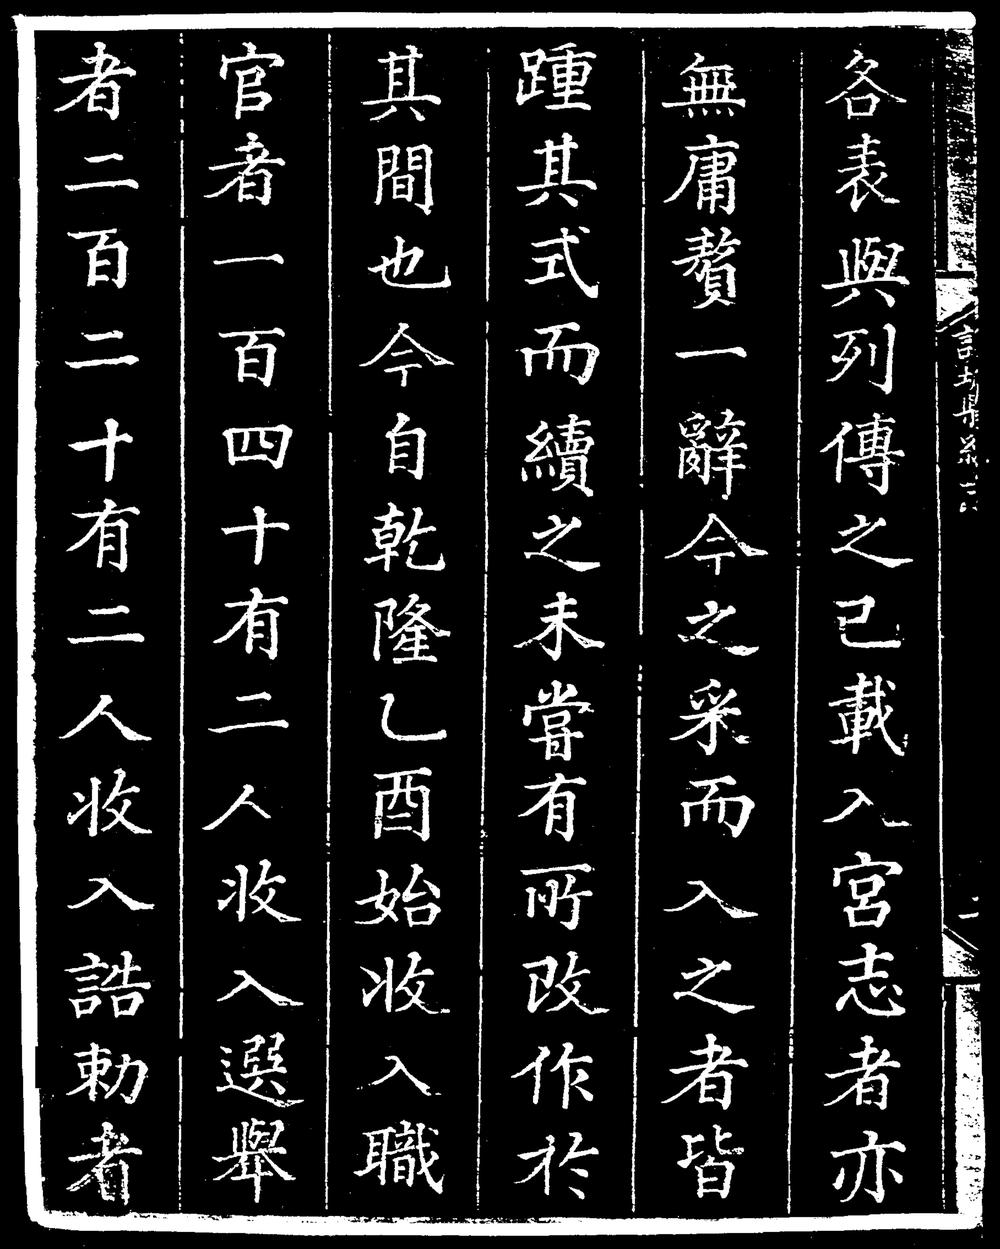 各表與列傳之已載入宮志者亦
無庸贅一辭今之采而入之者皆
踵其式而續之未嘗有所改作於
其間也今自乾隆乙酉始收入職
官者一百四十有二人收入選舉
者二百二十有二人收入誥勅者